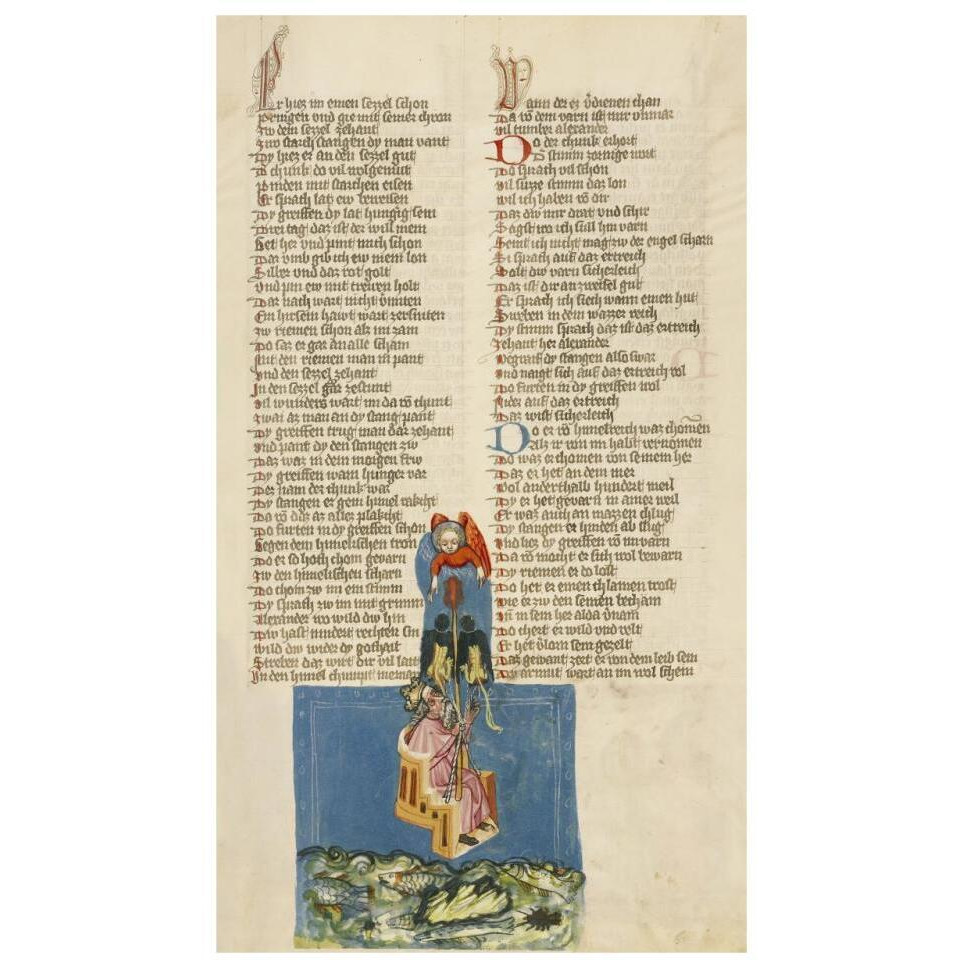 Er hiez im einen sezzel schon
Pringen vnd gie mit seiner chron
Zw dem sezzel zehant
Zwo starch stangen dy man vant
Dy hiez er an den sezzel gut
D chunk do vil wolgemut
Pinden mit starchen eisen
Er sprach lat ew beweisen
Dy greiffen dy lat hungrig sein
Drei tag daz ist der will mein
Get her vnd pint mich schon
Dar vmb gib ich ew mein lon
Silber vnd daz rot golt
Vnd pin ew mit trewen holt
Dar nach wart nicht vermiten
Ein hirsein hawt wart zersniten
Zw riemen schon als im zam
Do saz er gar an alle scham
Mit den riemen man in pant
Vnd den sezzel zehant
In den sezzel gar zestunt
Vil wunders wart im da von chunt
Zwai az man an dy stang pant
Dy greiffen trug man dar zehant
Vnd pant dy den stangen zw
Daz waz in dem morgen frw
Dy greiffen wam hunger var
Der nam der chunk war
Dy stangen er gem himel rakcht
Da von daz az allez plakcht
Do furten in dy greiffen schon
Gegen dem himelischen tron
Do er so hoch chom gevarn
Zw den himelischen scharn
Do chom zw im ein stimm
Dy sprach zw im mit grimm
Alexander wo wild dw hin
Dw hast nindert rechten sin
Wild dw wider dy gothait
Streben daz wirt dir vil lait
In den himel chumpt nieman
Wann der ez verdienen chan
Da von dein varn ist mir vnmar
Vil tumber alexander
Do der chunk erhort
Dy stimm zornige wort
Er sprach vil schon
Vil suzze stimm daz lon
Wil ich haben von dir
Daz dw mir drat vnd schir
Sagst wo ich sull hin varn
Seint ich nicht mag zw der engel scharn
Si sprach auf daz ertreich
Solt dw varn sicherleich
Daz ist dir an zweifel gut
Er sprach ich siech wann einen hut
Sweben in dem wazzer reich
Dy stimm sprach daz ist daz ertreich
Zehant her alexander
Begraif dy stangen also swar
Vnd naigt sich auf daz ertreich wol
Do furten in dy greiffen wol
Nider auf daz ertreich
Daz wist sicherleich
Do er von himelreich waz chomen
Als ir von im habt vernomen
Do waz er chomen von seinem her
Daz er het an dem mer
Wol anderthalb hundert meil
Dy er het gevarn in ainer weil
Er waz auch an mazzen chlug
Dy stangen er hinden ab slug
Vnd hez dy greiffen von im varn
Da von mocht er sich wol bewarn
Dy riemen er do lost
Do het er einen chlainen trost
Wie er zw den seinen becham
In sein her alda vernam
Do chert er wild vnd velt
Er het verlorn sein gezelt
Daz gewant zert er von dem leib sein
Dy armut wart an im wol schein